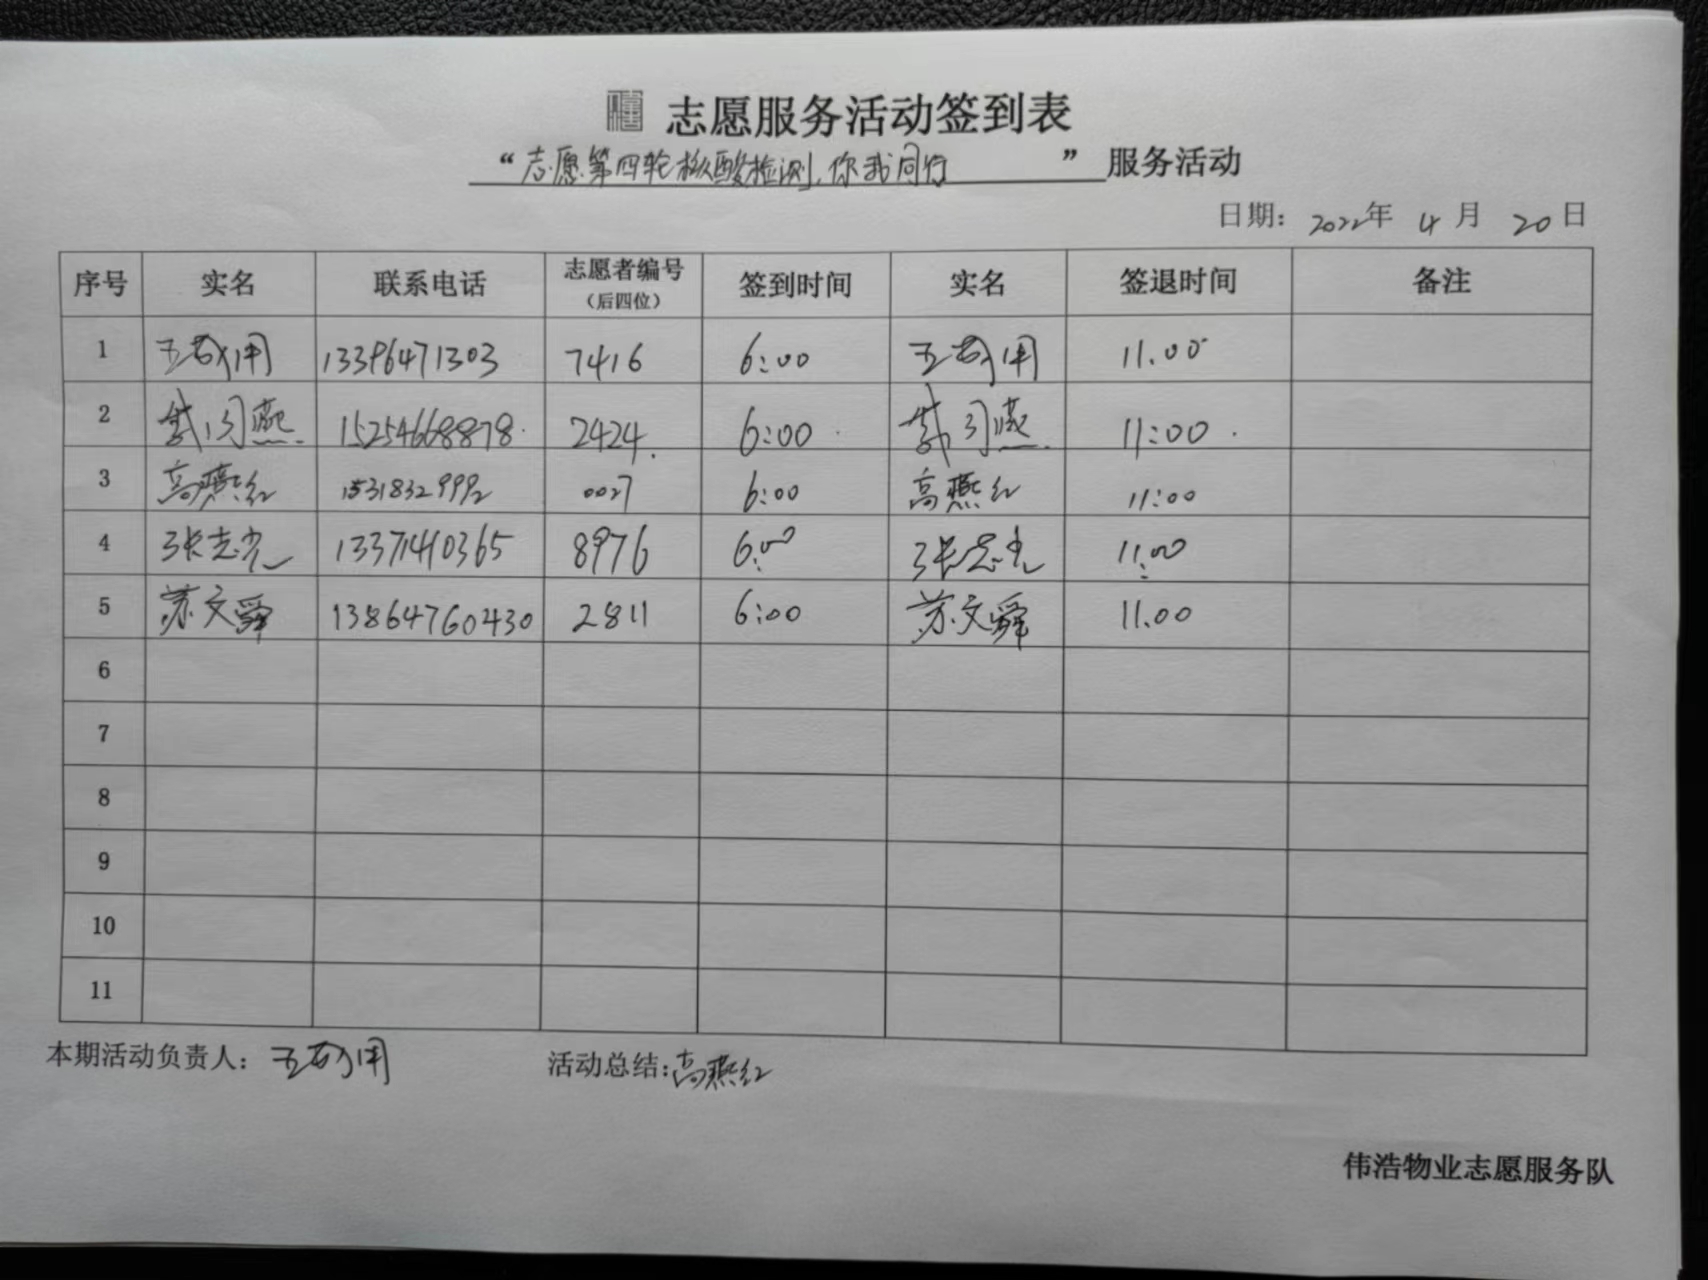 志愿服务活动签到表
“志愿第四轮核酸检测,你我同行” 服务活动
日期: 2022年 4月 20日
序号 实名 联系电话 志愿者编号(后四位) 签到时间 实名 签退时间 备注
1 13396471303 7416 6:00 11.00
2 15254668878 2424 6:00 11:00
3 高燕红 15318329992 0027 6:00 高燕红 11:00
4 张志光 13371410365 8976 6:00 张志光 11:00
5 苏文舜 13864760430 2811 6:00 苏文舜 11.00
6
7
8
9
10
11
本期活动负责人: 活动总结:高燕红
伟浩物业志愿服务队